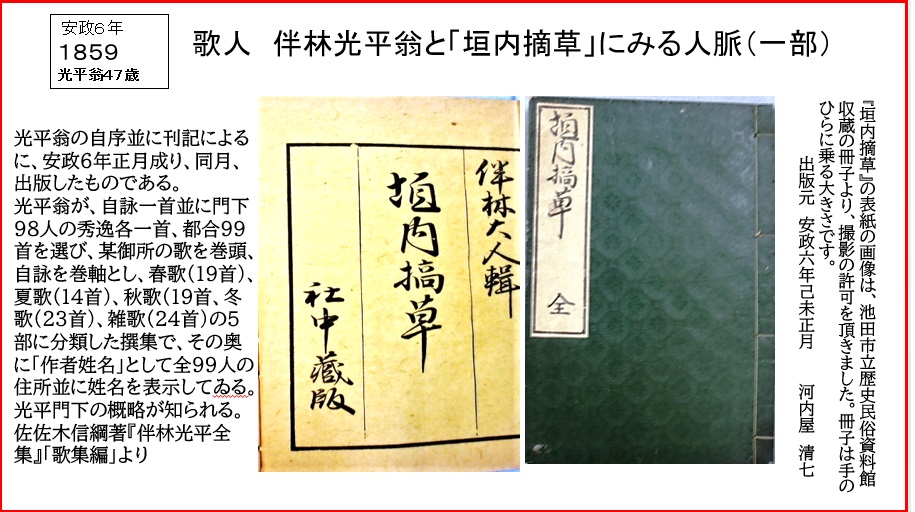 安政６年
１８５９
光平翁４７歳
歌人　伴林光平翁と「垣内摘草」にみる人脈（一部）
光平翁の自序並に刊記による
に、安政６年正月成り、同月、
出版したものである。
光平翁が、自詠一首並に門下
９８人の秀逸各一首、都合９９
首を選び、某御所の歌を巻頭、
自詠を巻軸とし、春歌（１９首）、
夏歌（１４首）、秋歌（１９首、冬
歌（２３首）、雑歌（２４首）の５
部に分類した撰集で、その奥
に「作者姓名」として全９９人の
住所並に姓名を表示してゐる。
光平門下の概略が知られる。
佐佐木信綱著『伴林光平全
集』「歌集編」より
伴林大人輯
垣内摘草
社中藏版
垣内摘草　全
『垣内摘草』の表紙の画像は、池田市立歴史民俗資料館
収蔵の冊子より、撮影の許可を頂きました。冊子は手の
ひらに乗る大きさです。
出版元　安政六年己未正月　　河内屋　清七